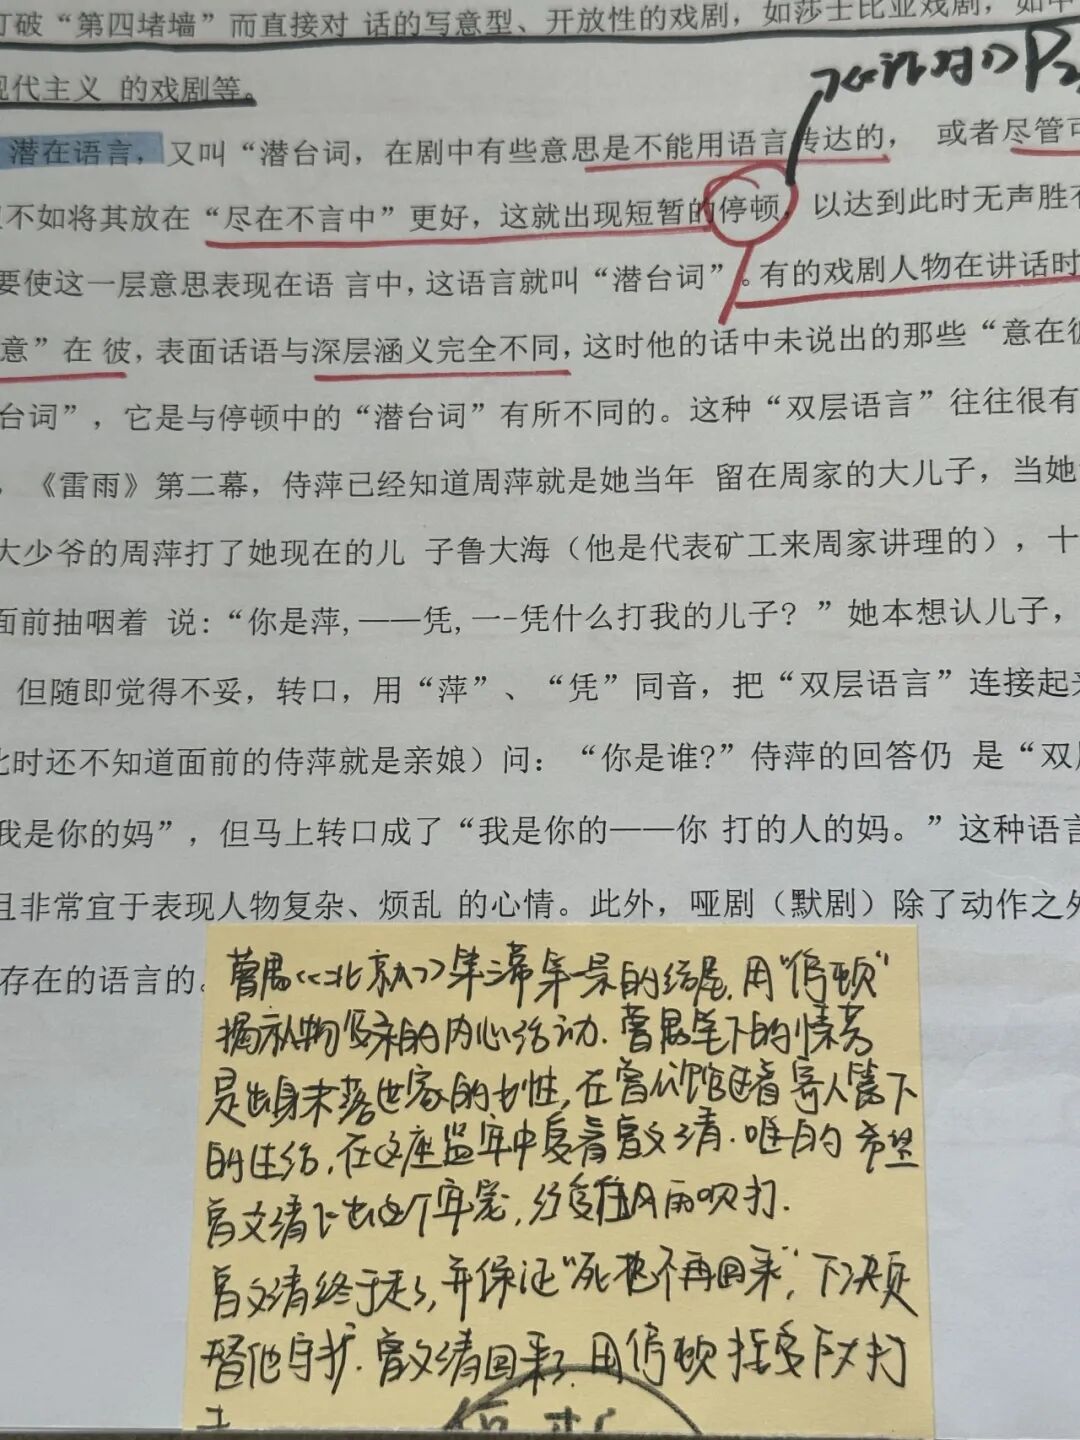 打破“第四堵墙”而直接对 话的写意型、开放性的戏剧，如莎士比亚戏剧，如中
现代主义 的戏剧等。
潜在语言，又叫“潜台词，在剧中有些意思是不能用语言传达的， 或者尽管可
不如将其放在“尽在不言中”更好，这就出现短暂的停顿，以达到此时无声胜
要使这一层意思表现在语 言中，这语言就叫“潜台词”。有的戏剧人物在讲话时
意”在 彼，表面话语与深层涵义完全不同，这时他的话中未说出的那些“意在彼
台词”，它是与停顿中的“潜台词”有所不同的。这种“双层语言”往往很有
，《雷雨》第二幕，侍萍已经知道周萍就是她当年 留在周家的大儿子，当她
大少爷的周萍打了她现在的儿 子鲁大海（他是代表矿工来周家讲理的），十
面前抽咽着 说：“你是萍,——凭,一-凭什么打我的儿子？”她本想认儿子，
但随即觉得不妥，转口，用“萍”、“凭”同音，把“双层语言”连接起来
此时还不知道面前的侍萍就是亲娘）问：“你是谁?”侍萍的回答仍 是“双层
我是你的妈”，但马上转口成了“我是你的——你 打的人的妈。”这种语言
且非常宜于表现人物复杂、烦乱 的心情。此外，哑剧（默剧）除了动作之外
存在的语言的。
曹禺《北京人》第三幕第一景的结尾,用“停顿”
揭示人物复杂的内心活动.曹禺笔下的愫芳
是出身末落世家的女性,在曾公馆过着寄人篱下
的生活,在这座监牢中爱着曾文清.唯一的希望
曾文清飞出这个牢笼,经受住风雨吹打.
曾文清终于走了,并保证“死也不再回来”,下决定
替他守护.曾文清回来了.用停顿接受巨大打